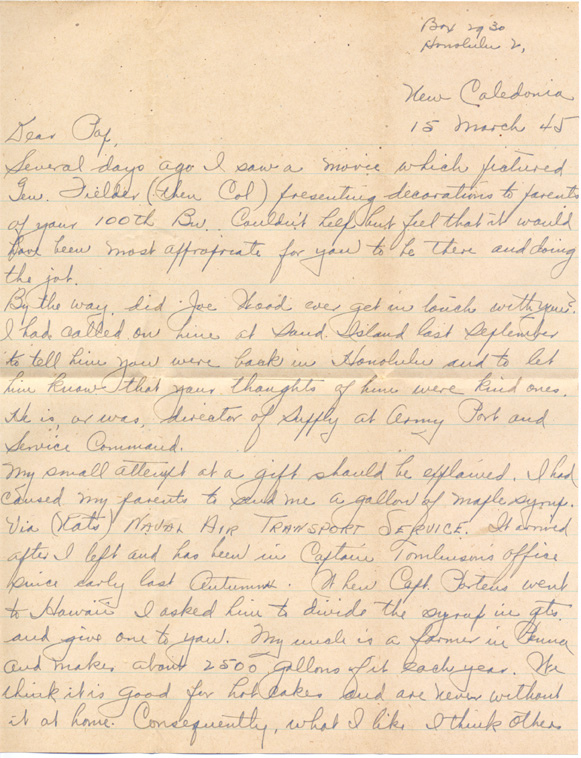 Box 2930
Honolulu 2,
New Caledonia
15 March 45
Dear Pap,
Several days ago I saw a movie which pictured
Gen. Fielder (then Col) presenting decorations to parents
of your 100th Bn. Couldn't help but feel that it would
have been most appropriate for you to be there and doing
the job.
By the way, did Joe Wood ever get in touch with you?
I had called on him at Sand Island last September
to tell him you were back in Honolulu and to let
him know that your thoughts of him were kind ones.
He is, or was, director of Supply at Army Port and
Service Command.
My small attempt at a gift should be explained. I had
caused my parents to send me a gallon of maple syrup.
Via (Nats) NAVAL AIR TRANSPORT SERVICE. It arrived
after I left and has been in Captain Tomlinson's office
since early last Autumn. When Capt. Portens went
to Hawaii I asked him to divide the syrup in qts.
and give one to you. My uncle is a farmer in Penna
and makes about 2500 gallons of it each year. We
think it is good for hot cakes and are never without
it at home. Consequently, what I like I think others